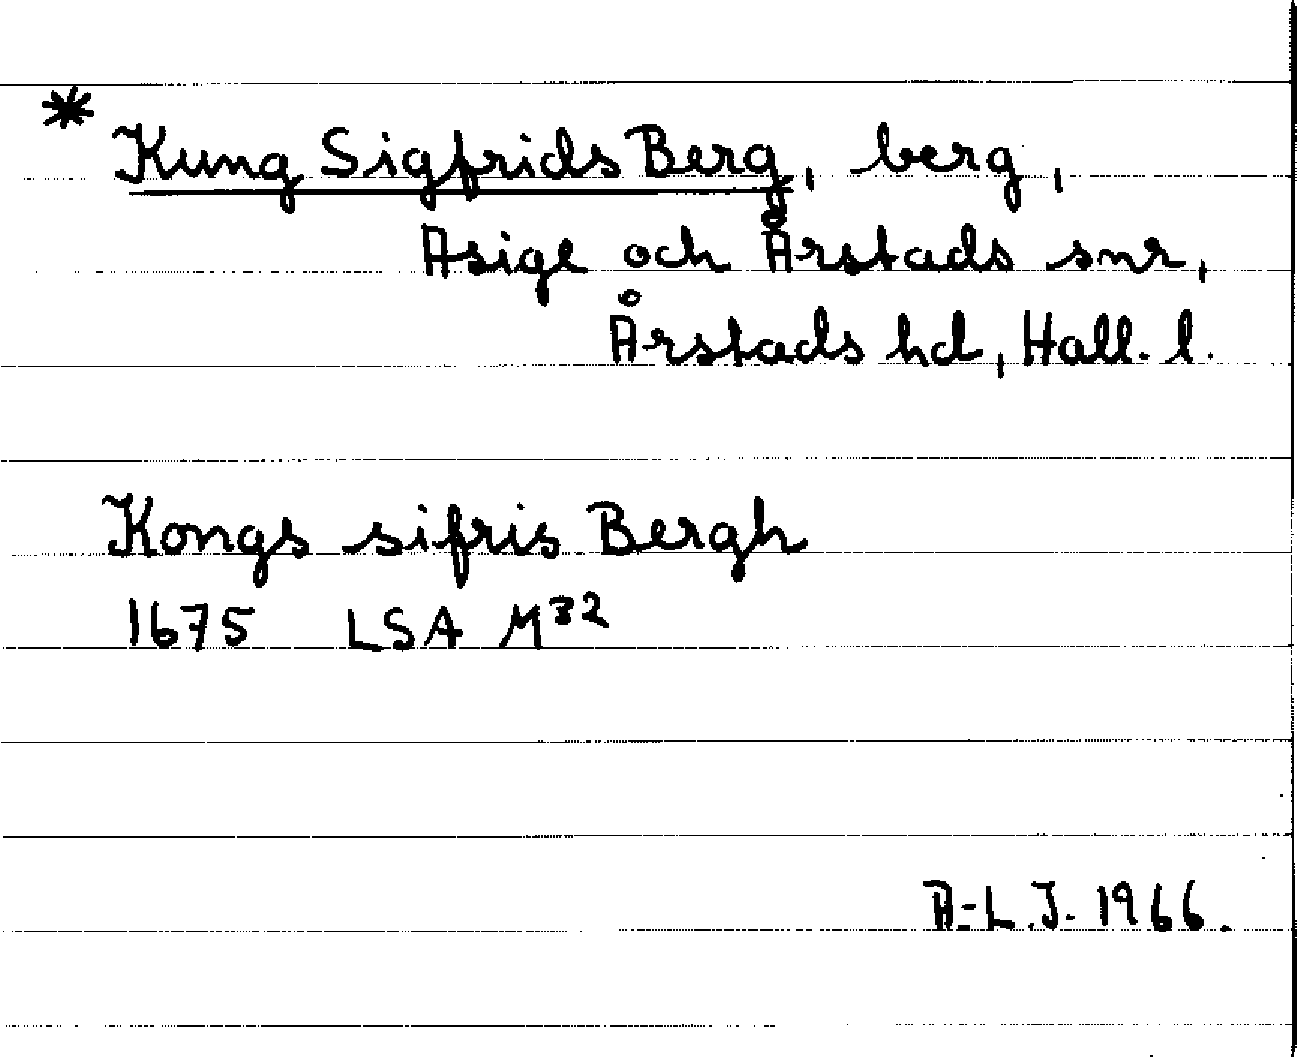 * Kung Sigfrids Berg, berg,
Asige och Årstads snr,
Årstads hd, Hall. l.
Kongs sifris Bergh
1675 LSA M³²
A.-L. J. 1966.